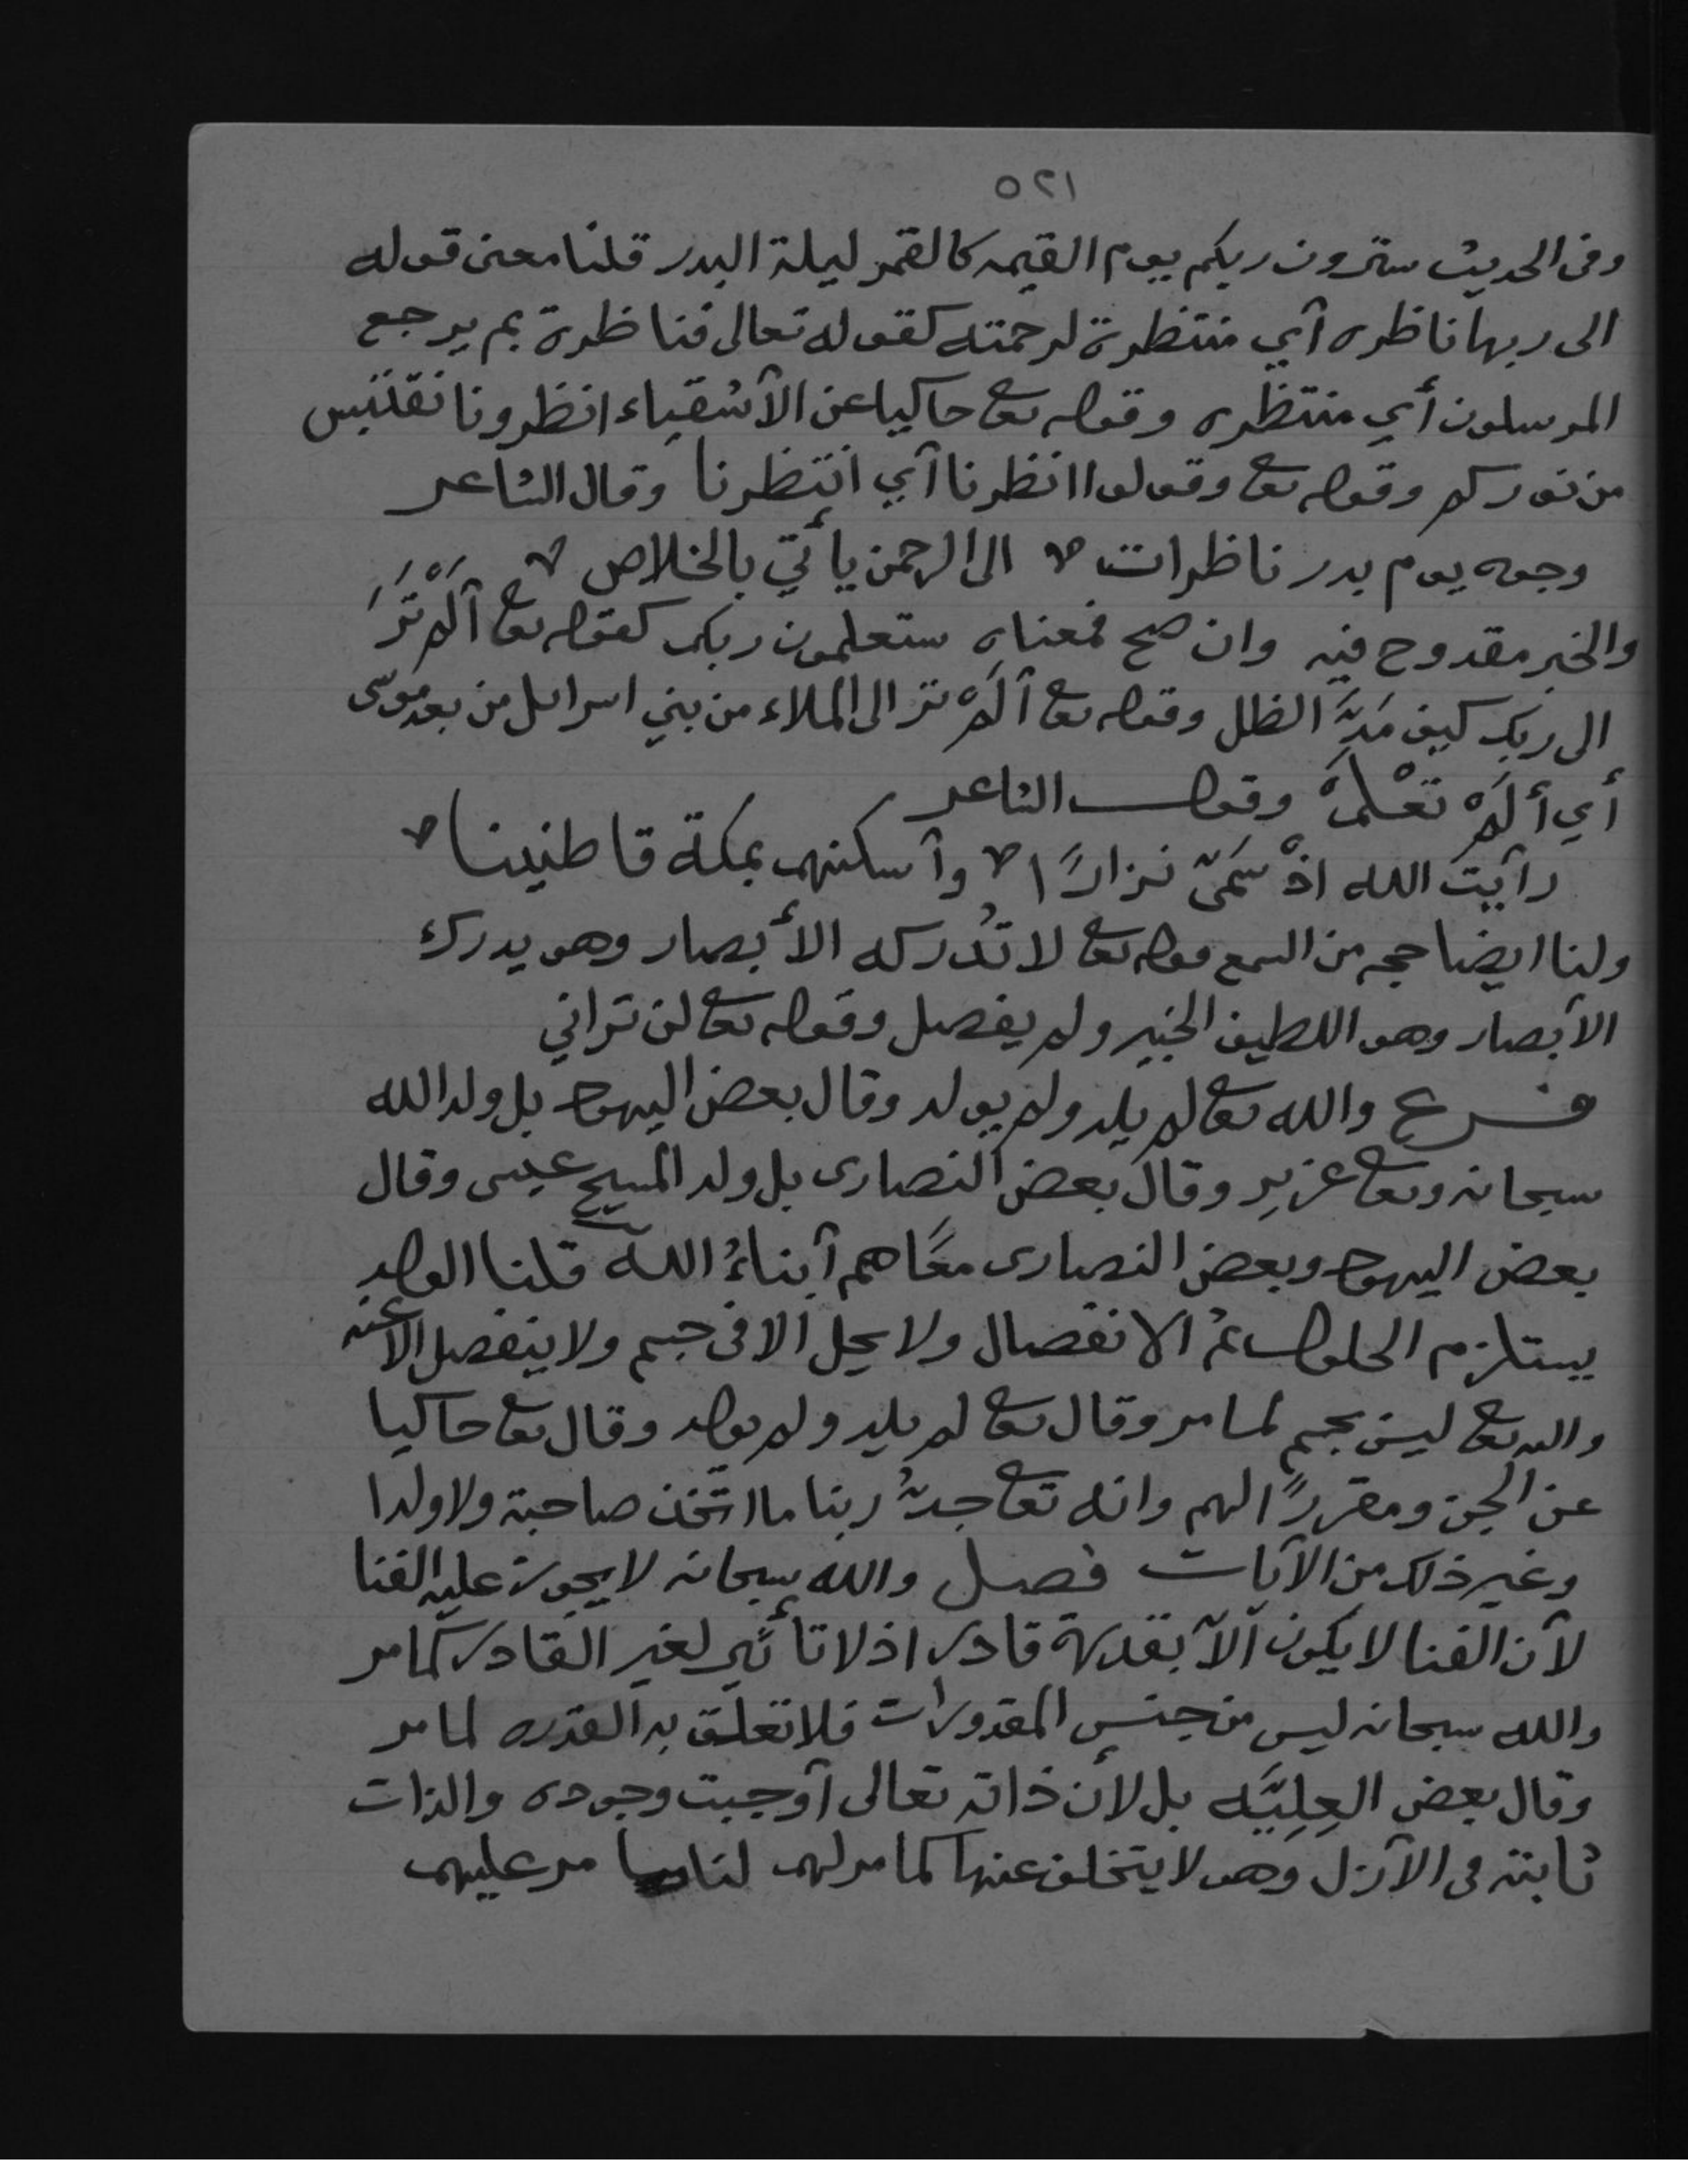 ٥٢١
وفى الحديث سترون ربكم يوم القيمه كالقمر ليلة البدر قلنا معنى قوله
الى ربها ناظره أي منتظرة لرحمته كقوله تعالى فناظرة بم يرجع
المرسلون أي منتظره وقوله تعا حاكيا عن الأشقياء انظرونا نقتبس
من نوركم وقوله تعا وقولوا انظرنا أي انتظرنا وقال الشاعر
وجوه يوم بدر ناظرات الى الرحمن يأتي بالخلاص
والخبر مقدوح فيه وان صح فمعناه ستعلمون ربكم كقوله تعا أَلَمْ تَرَ
الى ربك كيف مَدَّ الظل وقوله تعا ألَمْ تر الى الملاء من بني اسرايل من بعد موسى
أي ألَمْ تعْلَمْ وقول الشاعر
رأيتَ الله اذْ سَمَّى نزارًا وأسكنهم بمكة قاطنينا
ولنا ايضا حجه من السمع قوله تعا لا تُدركه الأبصار وهو يدرك
الأبصار وهو اللطيف الخبير ولم يفصل وقوله تعا لن تراني
فرع والله تعا لم يلد ولم يولد وقال بعض اليهود بل ولد الله
سبحانه وتعا عزير وقال بعض النصارى بل ولد المسيح عيسى وقال
بعض اليهود وبعض النصارى معًا هم أبناءُ الله قلنا الولد
يستلزم الحلول ثم الانفصال ولا يحل الا فى جسم ولا ينفصل الا عنه
والله تعا ليس بجسم لما مر وقال تعا لم يلد ولم يولد وقال تعا حاكيا
عن الجن ومقررًا لهم وانه تعا جدُّ ربنا ما اتّخذ صاحبة ولا ولدا
وغير ذلك من الآيات فصل والله سبحانه لا يجوز عليه الفنا
لأن الفنا لا يكون الاّ بقدرة قادر اذ لا تأثير لغير القادر كما مر
والله سبحانه ليس من جنس المقدورات فلا تعلق به القدره لما مر
وقال بعض العِلِيَّه بل لأن ذاته تعالى أوجبت وجوده والذات
ثابته فى الأزل وهو لا يتخلف عنها كما مر لهم لنا ما مر عليهم